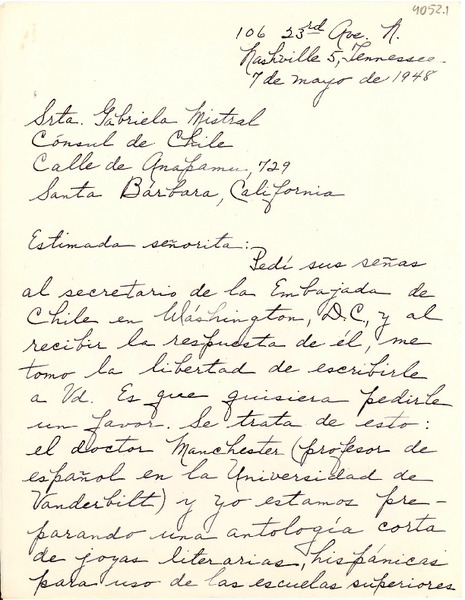 4092.1
106 23rd Ave. N.
Nashville 5, Tennessee.
7 de mayo de 1948
Srta. Gabriela Mistral
Cónsul de Chile
Calle de Anapamu, 729
Santa Bárbara, California
Estimada señorita:
Pedí sus señas
al secretario de la Embajada de
Chile en Wáshington, D.C., y al
recibir la respuesta de él, me
tomo la libertad de escribirle
a Vd. Es que quisiera pedirle
un favor. Se trata de esto:
el doctor Manchester (profesor de
español en la Universidad de
Vanderbilt) y yo estamos pre-
parando una antología corta
de joyas literarias, hispánicas
para uso de las escuelas superiores